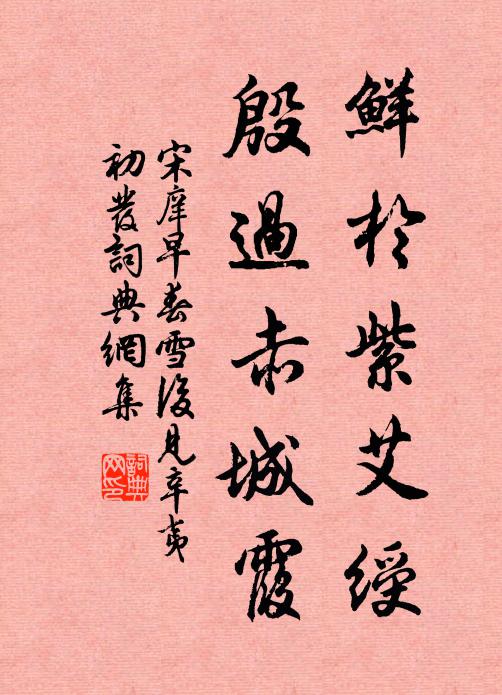 鮮於紫艾綬
殷過赤城霞
宋庠早春雪後見辛夷
初發詞典網集
詞典網印